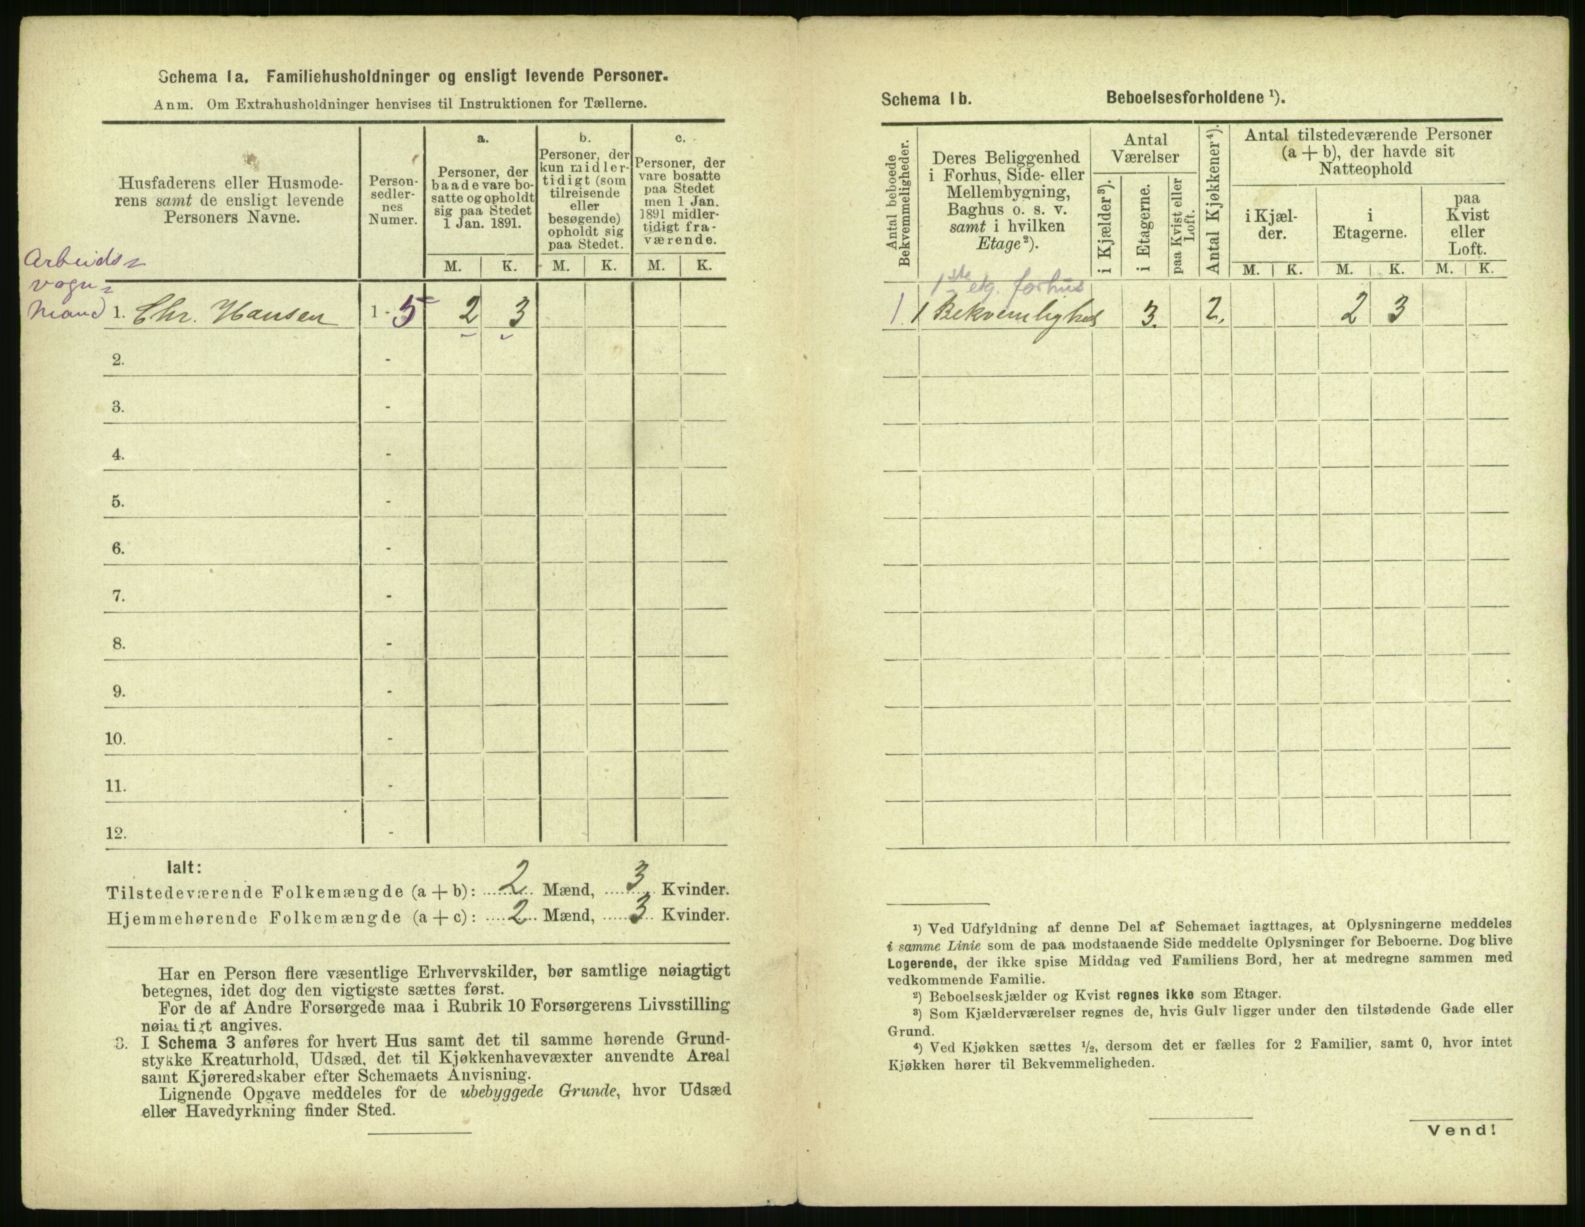 Schema 1a. Familiehusholdninger og ensligt levende Personer.
Anm. Om Extrahusholdninger henvises til Instruktionen for Tællerne.
Husfaderens eller Husmode-
rens samt de ensligt levende
Personers Navne.
Person-
sedler-
nes
Numer.
a.
Personer, der
baade vare bo-
satte og opholdt
sig paa Stedet
1 Jan. 1891.
b.
Personer, der
kun midler-
tidigt (som
tilreisende
eller
besøgende)
opholdt sig
paa Stedet.
c.
Personer, der
vare bosatte
paa Stedet
men 1 Jan.
1891 midler-
tidigt fra-
værende.
M. K. M. K. M. K.
Arbeids-
vogn-
mand
1. Chr. Hansen 1 - 5 2 3
2. -
3. -
4. -
5. -
6. -
7. -
8. -
9. -
10. -
11. -
12. -
Ialt:
Tilstedeværende Folkemængde (a + b): 2 Mænd, 3 Kvinder.
Hjemmehørende Folkemængde (a + c): 2 Mænd, 3 Kvinder.
Har en Person flere væsentlige Erhvervskilder, bør samtlige nøiagtigt
betegnes, idet dog den vigtigste sættes først.
For de af Andre Forsørgede maa i Rubrik 10 Forsørgerens Livsstilling
nøiagtigt angives.
3. I Schema 3 anføres for hvert Hus samt det til samme hørende Grund-
stykke Kreaturhold, Udsæd, det til Kjøkkenhavevæxter anvendte Areal
samt Kjøreredskaber efter Schemaets Anvisning.
Lignende Opgave meddeles for de ubebyggede Grunde, hvor Udsæd
eller Havedyrkning finder Sted.
Schema 1b. Beboelsesforholdene ¹).
Antal beboede
Bekvemmeligheder.
Deres Beliggenhed
i Forhus, Side- eller
Mellembygning,
Baghus o. s. v.
samt i hvilken
Etage²).
Antal
Værelser
i Kjælder³).
i Etagerne.
paa Kvist eller
Loft.
Antal Kjøkkener⁴).
Antal tilstedeværende Personer
(a + b), der havde sit
Natteophold
i Kjæl-
der.
i
Etagerne.
paa
Kvist
eller
Loft.
M. K. M. K. M. K.
1ste etg. forhus
1. 1 Bekvemlighed 3. 2. 2 3
¹) Ved Udfyldning af denne Del af Schemaet iagttages, at Oplysningerne meddeles
i samme Linie som de paa modstaaende Side meddelte Oplysninger for Beboerne. Dog blive
Logerende, der ikke spise Middag ved Familiens Bord, her at medregne sammen med
vedkommende Familie.
²) Beboelseskjælder og Kvist regnes ikke som Etager.
³) Som Kjælderværelser regnes de, hvis Gulv ligger under den tilstødende Gade eller
Grund.
⁴) Ved Kjøkken sættes ½, dersom det er fælles for 2 Familier, samt 0, hvor intet
Kjøkken hører til Bekvemmeligheden.
Vend!